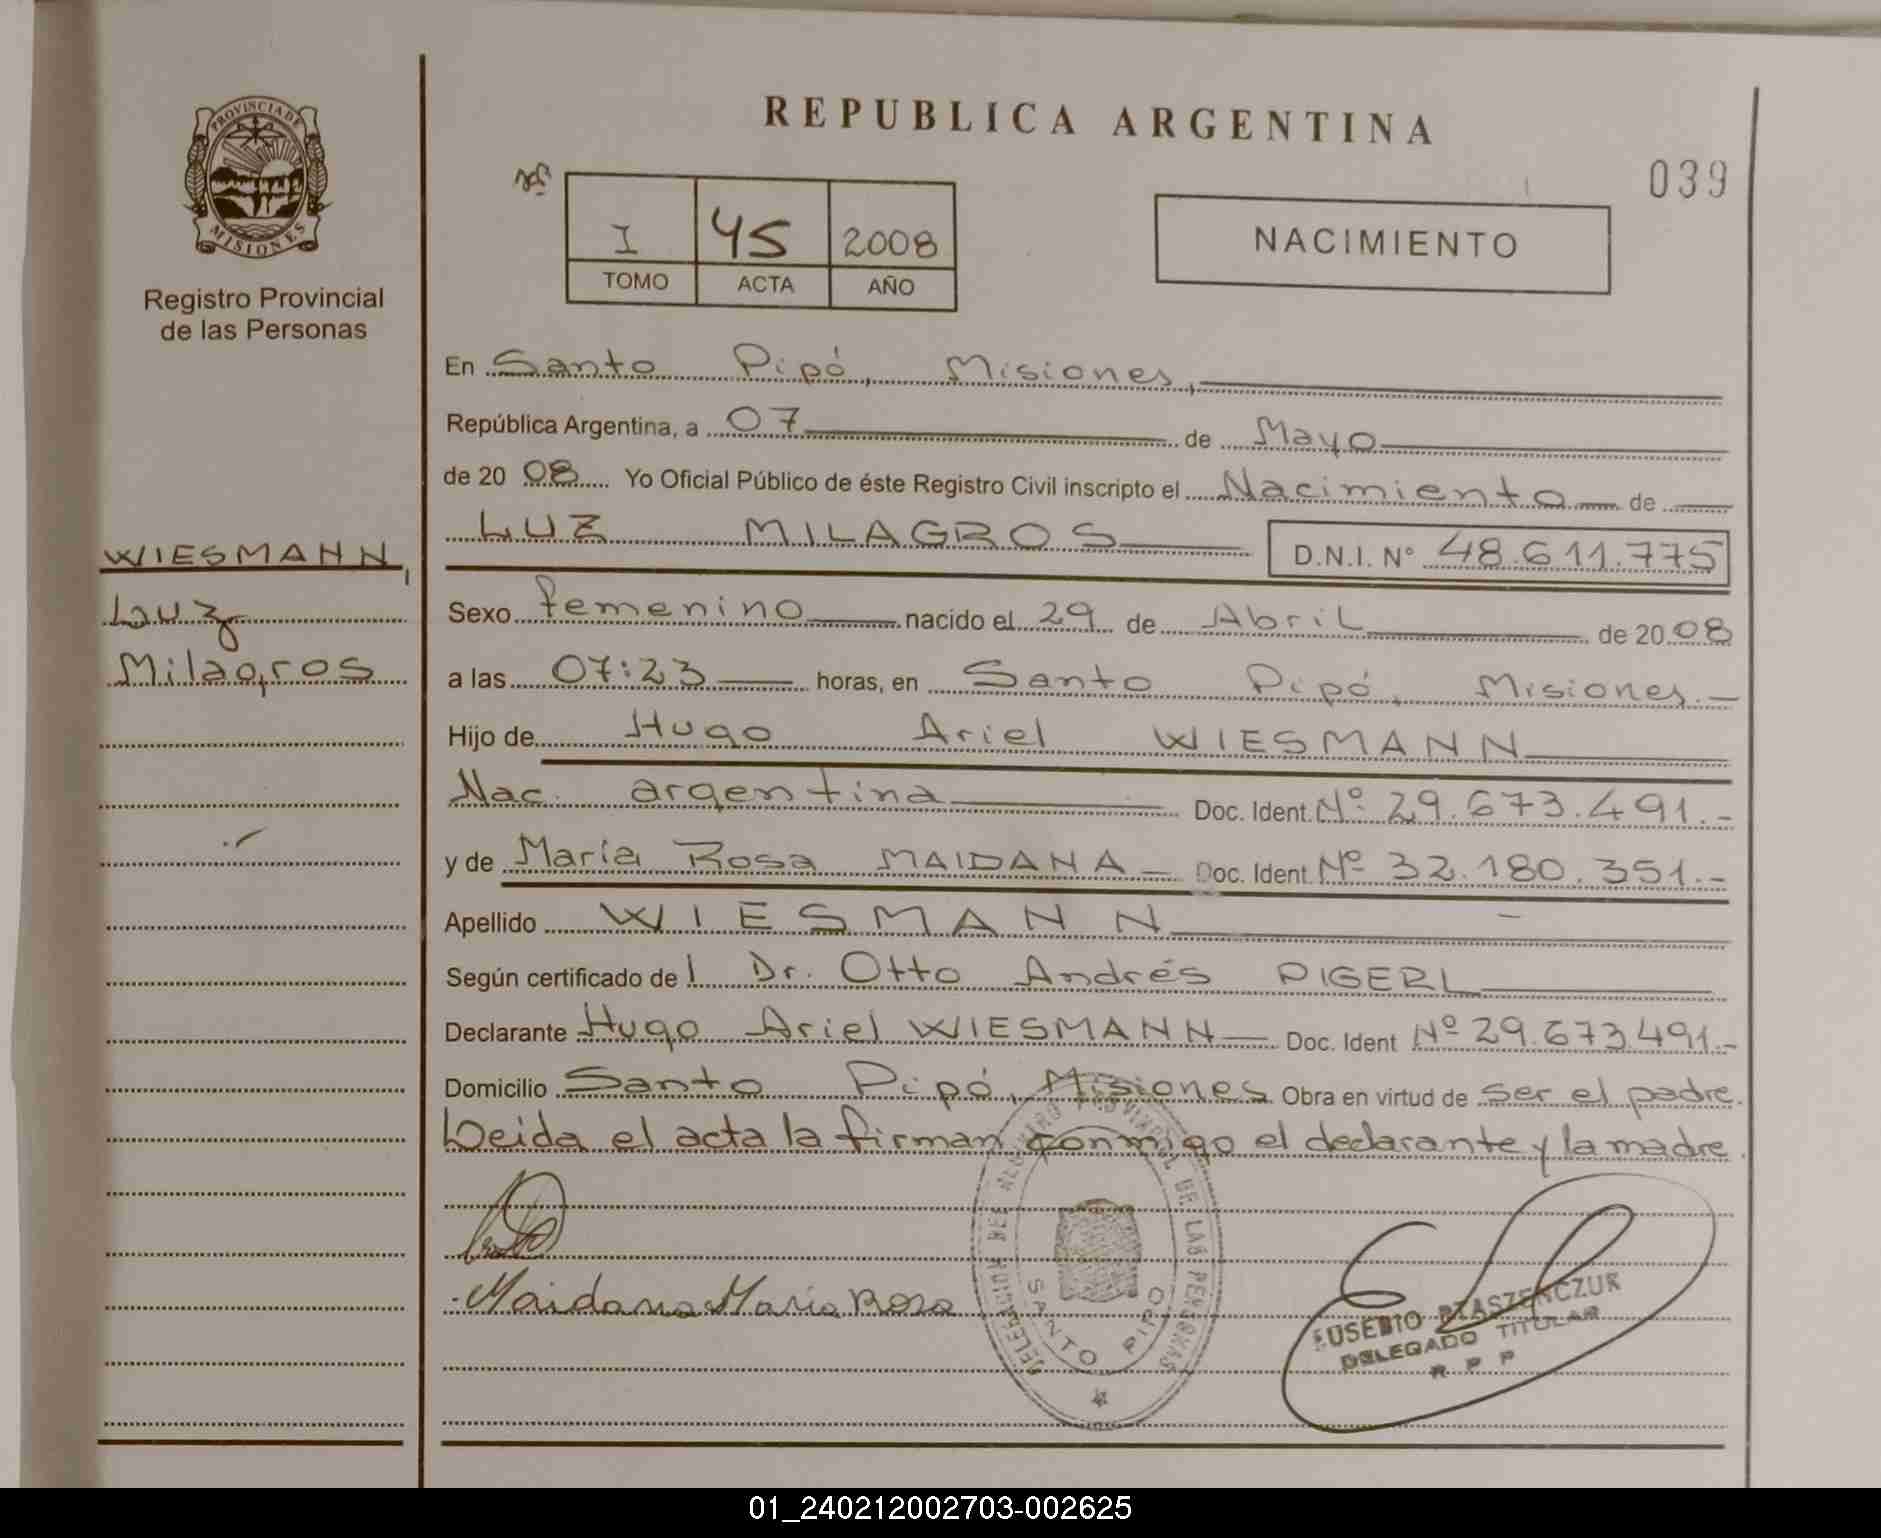 REPUBLICA ARGENTINA
039
PROVINCIA DE
MISIONES
Registro Provincial
de las Personas
I 45 2008
TOMO ACTA AÑO
NACIMIENTO
En Santo Pipó, Misiones,
República Argentina, a 07 de Mayo
de 20 08 Yo Oficial Público de éste Registro Civil inscripto el Nacimiento de
LUZ MILAGROS D.N.I. N° 48.611.775
WIESMANN,
Luz
Milagros
Sexo femenino nacido el 29 de Abril de 20 08
a las 07:23 horas, en Santo Pipó, Misiones.-
Hijo de Hugo Ariel WIESMANN
Nac. argentina Doc. Ident. Nº 29.673.491.-
y de María Rosa MAIDANA Doc. Ident. Nº 32.180.351.-
Apellido WIESMANN
Según certificado del Dr. Otto Andrés PIGERL
Declarante Hugo Ariel WIESMANN Doc. Ident Nº 29.673.491.-
Domicilio Santo Pipó, Misiones Obra en virtud de ser el padre.
Leida el acta la firman conmigo el declarante y la madre.
Maidana Maria Rosa
DELEGACION DEL REGISTRO PROVINCIAL DE LAS PERSONAS
SANTO PIPO
EUSEBIO PTASZENCZUK
DELEGADO TITULAR
R P P
01_240212002703-002625